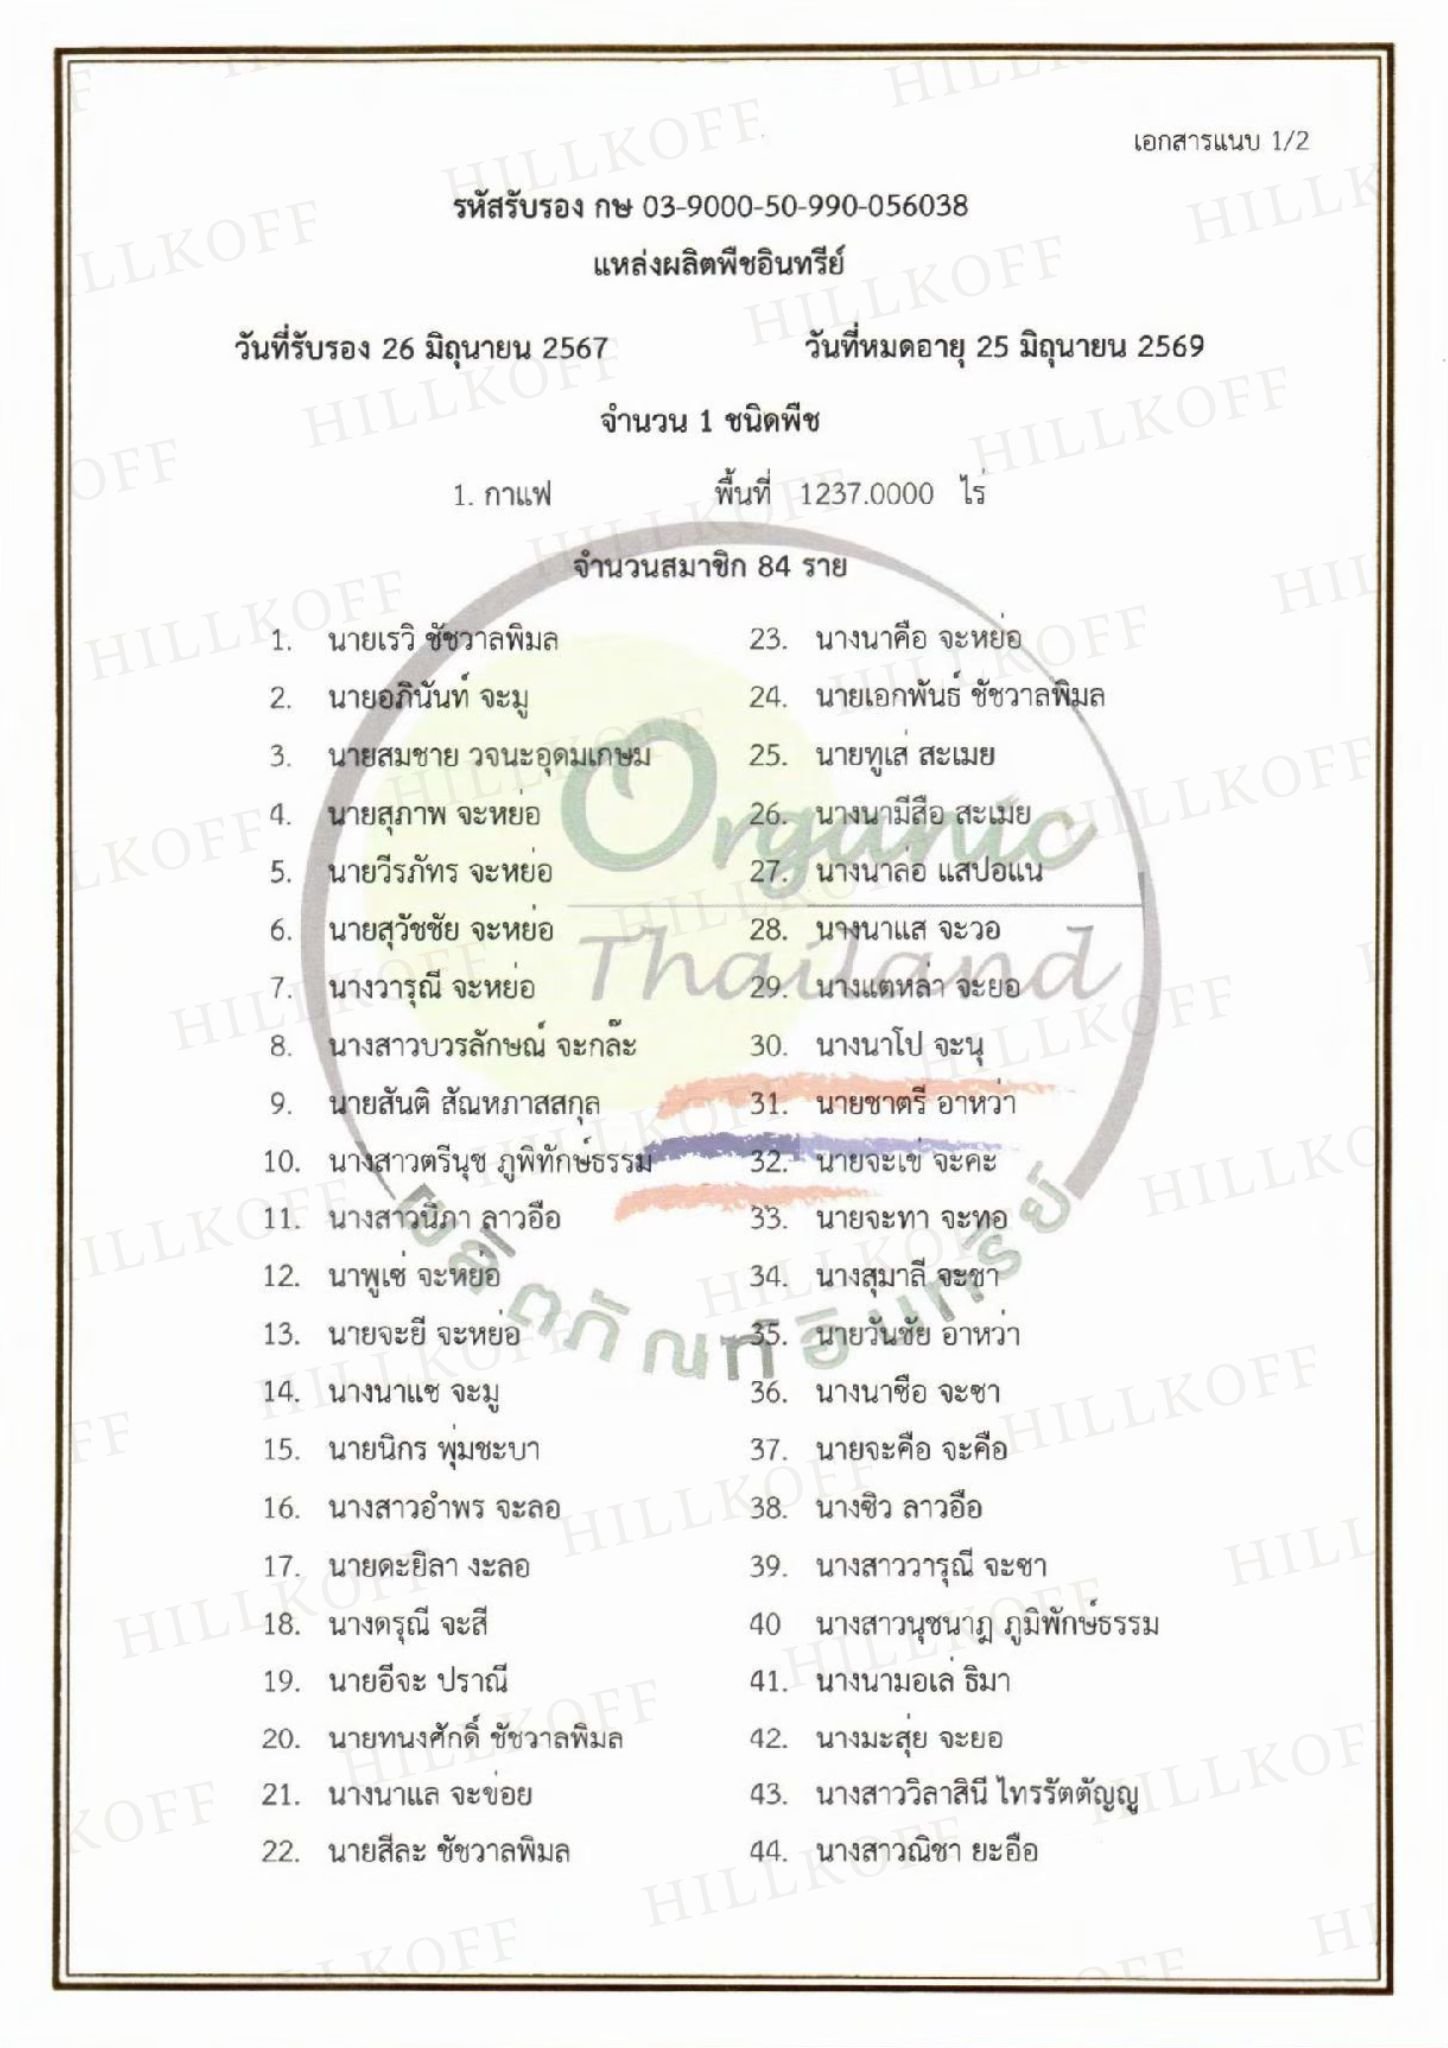 เอกสารแนบ 1/2
รหัสรับรอง กษ 03-9000-50-990-056038
แหล่งผลิตพืชอินทรีย์
วันที่รับรอง 26 มิถุนายน 2567 วันที่หมดอายุ 25 มิถุนายน 2569
จำนวน 1 ชนิดพืช
1. กาแฟ พื้นที่ 1237.0000 ไร่
จำนวนสมาชิก 84 ราย
1. นายเรวิ ชัชวาลพิมล
2. นายอภินันท์ จะมู
3. นายสมชาย วจนะอุดมเกษม
4. นายสุภาพ จะหย่อ
5. นายวีรภัทร จะหย่อ
6. นายสุวัชชัย จะหย่อ
7. นางวารุณี จะหย่อ
8. นางสาวบวรลักษณ์ จะกล๊ะ
9. นายสันติ สัณหภาสสกุล
10. นางสาวตรีนุช ภูพิทักษ์ธรรม
11. นางสาวนิภา ลาวอือ
12. นาพูเซ่ จะหย่อ
13. นายจะยี จะหย่อ
14. นางนาแซ จะมู
15. นายนิกร พุ่มชะบา
16. นางสาวอำพร จะลอ
17. นายดะยิลา งะลอ
18. นางดรุณี จะสี
19. นายอีจะ ปราณี
20. นายทนงศักดิ์ ชัชวาลพิมล
21. นางนาแล จะข่อย
22. นายสีละ ชัชวาลพิมล
23. นางนาคือ จะหย่อ
24. นายเอกพันธ์ ชัชวาลพิมล
25. นายทูเส่ สะเมย
26. นางนามีสือ สะเมย
27. นางนาล่อ แสปอแน
28. นางนาแส จะวอ
29. นางแตหล่า จะยอ
30. นางนาโป จะนุ
31. นายชาตรี อาหว่า
32. นายจะเข่ จะคะ
33. นายจะทา จะทอ
34. นางสุมาลี จะซา
35. นายวันชัย อาหว่า
36. นางนาซือ จะซา
37. นายจะคือ จะคือ
38. นางซิว ลาวอือ
39. นางสาววารุณี จะซา
40 นางสาวนุชนาฎ ภูมิพักษ์ธรรม
41. นางนามอเล่ ธิมา
42. นางมะสุ่ย จะยอ
43. นางสาววิลาสินี ไทรรัตตัญญู
44. นางสาวณิชา ยะอือ
Organic
Thailand
ผลิตภัณฑ์อินทรีย์
HILLKOFF